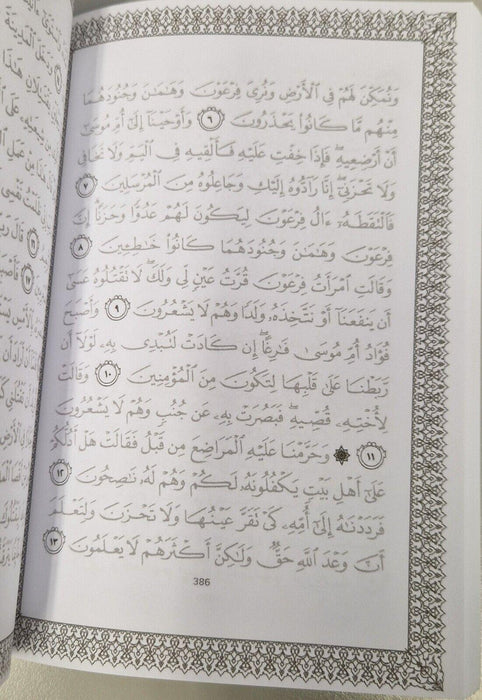 وَنُمَكِّنَ لَهُمْ فِي ٱلْأَرْضِ وَنُرِيَ فِرْعَوْنَ وَهَـٰمَـٰنَ وَجُنُودَهُمَا
مِنْهُم مَّا كَانُوا۟ يَحْذَرُونَ ٦ وَأَوْحَيْنَآ إِلَىٰٓ أُمِّ مُوسَىٰٓ
أَنْ أَرْضِعِيهِ ۖ فَإِذَا خِفْتِ عَلَيْهِ فَأَلْقِيهِ فِي ٱلْيَمِّ وَلَا تَخَافِي
وَلَا تَحْزَنِيٓ ۖ إِنَّا رَآدُّوهُ إِلَيْكِ وَجَاعِلُوهُ مِنَ ٱلْمُرْسَلِينَ ٧
فَٱلْتَقَطَهُۥٓ ءَالُ فِرْعَوْنَ لِيَكُونَ لَهُمْ عَدُوًّا وَحَزَنًا ۗ إِنَّ
فِرْعَوْنَ وَهَـٰمَـٰنَ وَجُنُودَهُمَا كَانُوا۟ خَـٰطِـِٔينَ ٨
وَقَالَتِ ٱمْرَأَتُ فِرْعَوْنَ قُرَّتُ عَيْنٍ لِّي وَلَكَ ۖ لَا تَقْتُلُوهُ عَسَىٰٓ
أَن يَنفَعَنَآ أَوْ نَتَّخِذَهُۥ وَلَدًا وَهُمْ لَا يَشْعُرُونَ ٩ وَأَصْبَحَ
فُؤَادُ أُمِّ مُوسَىٰ فَـٰرِغًا ۖ إِن كَادَتْ لَتُبْدِي بِهِۦ لَوْلَآ أَن
رَّبَطْنَا عَلَىٰ قَلْبِهَا لِتَكُونَ مِنَ ٱلْمُؤْمِنِينَ ١٠ وَقَالَتْ
لِأُخْتِهِۦ قُصِّيهِ ۖ فَبَصُرَتْ بِهِۦ عَن جُنُبٍ وَهُمْ لَا يَشْعُرُونَ
١١ ۞ وَحَرَّمْنَا عَلَيْهِ ٱلْمَرَاضِعَ مِن قَبْلُ فَقَالَتْ هَلْ أَدُلُّكُمْ
عَلَىٰٓ أَهْلِ بَيْتٍ يَكْفُلُونَهُۥ لَكُمْ وَهُمْ لَهُۥ نَـٰصِحُونَ ١٢
فَرَدَدْنَـٰهُ إِلَىٰٓ أُمِّهِۦ كَيْ تَقَرَّ عَيْنُهَا وَلَا تَحْزَنَ وَلِتَعْلَمَ
أَنَّ وَعْدَ ٱللَّهِ حَقٌّ وَلَـٰكِنَّ أَكْثَرَهُمْ لَا يَعْلَمُونَ ١٣
386